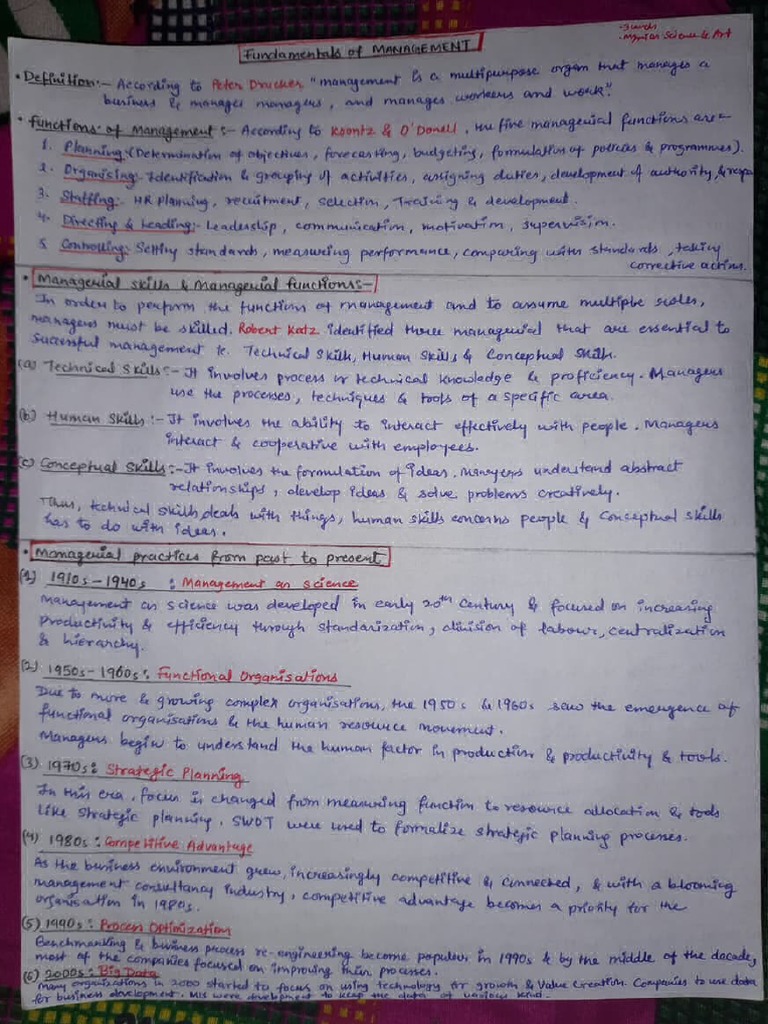 Fundamentals of MANAGEMENT
• Mgmt as Science & Art
• Definition:- According to Peter Drucker "management is a multipurpose organ that manages a
business & manages managers, and manages workers and work".
• Functions of Management :- According to Koontz & O'Donell, the five managerial functions are-
1. Planning:(Determination of objectives, forecasting, budgeting, formulation of policies & programmes).
2. Organising:- Identification & grouping of activities, assigning duties, development of authority, &
3. Staffing:- HR Planning, recruitment, selection, Training & development.
4. Directing & Leading:- Leadership, communication, motivation, supervision.
5. Controlling: Setting standards, measuring performance, comparing with standards, taking
corrective actions.
• Managerial skills & Managerial functions:-
In order to perform the functions of management and to assume multiple roles,
managers must be skilled. Robert Katz identified three managerial that are essential to
successful management ie. Technical Skills, Human Skills & Conceptual Skills.
(a) Technical Skills:- It involves process or technical knowledge & proficiency. Managers
use the processes, techniques & tools of a specific area.
(b) Human Skills :- It involves the ability to interact effectively with people. Managers
interact & cooperative with employees.
(c) Conceptual Skills :- It involves the formulation of ideas. Managers understand abstract
relationships, develop ideas & solve problems creatively.
Thus, technical skills deals with things, human skills concerns people & Conceptual skills
has to do with ideas.
• Managerial practices from past to present
(1) 1910s-1940s : Management as Science
Management as science was developed in early 20th Century & focused on increasing
productivity & efficiency through standarization, division of labour, centralization
& hierarchy.
(2) 1950s-1960s: Functional Organisations
Due to more & growing complex organisations, the 1950s & 1960s saw the emergence of
functional organisations & the human resource movement.
Managers begin to understand the human factor in production & productivity & tools.
(3) 1970s: Strategic Planning
In this era, focus is changed from measuring function to resource allocation & tools
like strategic planning, SWOT were used to formalize strategic planning processes.
(4) 1980s : Competitive Advantage
As the business environment grew, increasingly competitive & connected, & with a blooming
management consultancy industry, competitive advantage becomes a priority for the
organisation in 1980s.
(5) 1990s: Process Optimization
Benchmarking & business process re-engineering become popular in 1990s & by the middle of the decade,
most of the companies focused on improving their processes.
(6) 2000s: Big Data
Many organizations in 2000 started to focus on using technology for growth & Value Creation. Companies to use data
for business development. MIS were development to keep the data of various kind.